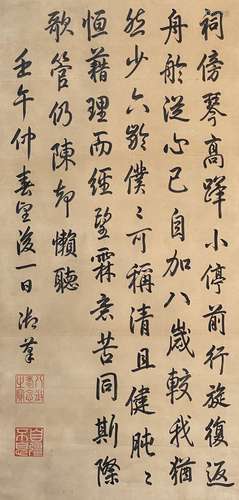 祠傍琴高蹕小停前行旋復返
舟舲從心已自加八歲較我猶
然少六齡僕々可稱清且健肫々
恒藉理而經望霖意苦同斯際
歌管仍陳却懶聽
壬午仲春望後一日御筆